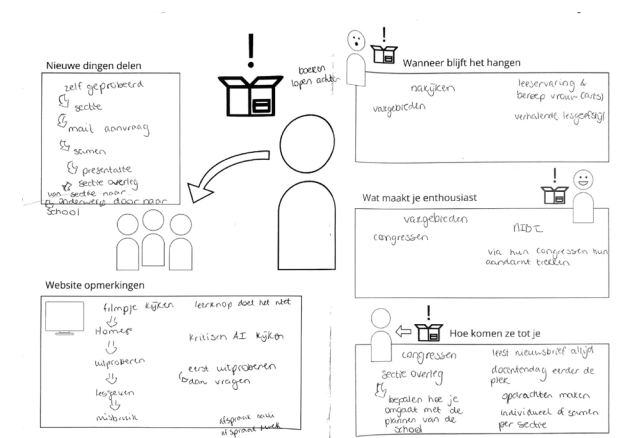 Nieuwe dingen delen
zelf geprobeerd
sectie
mail aanvraag
samen
presentatie
sectie overleg
van sectie naar
onderwerp door naar
school
!
boeken
lopen achter
Wanneer blijft het hangen
nakijken
vakgebieden
leeservaring &
beroep vrouw (arts)
verhalende lesgeefstijl
Wat maakt je enthousiast
vakgebieden
congressen
via hun congressen hun
aandacht trekken
Website opmerkingen
filmpje kijken
Homep
uitproberen
lesgeven
misbruik
leerknop doet het niet
kritisch AI kijken
eerst uitproberen
dan vragen
Hoe komen ze tot je
congressen
sectie overleg
bepalen hoe je
omgaat met de
plannen van de
school
leest nieuwsbrief altijd
docentendag eerder de
plek
opdrachten maken
individueel of samen
per sectie